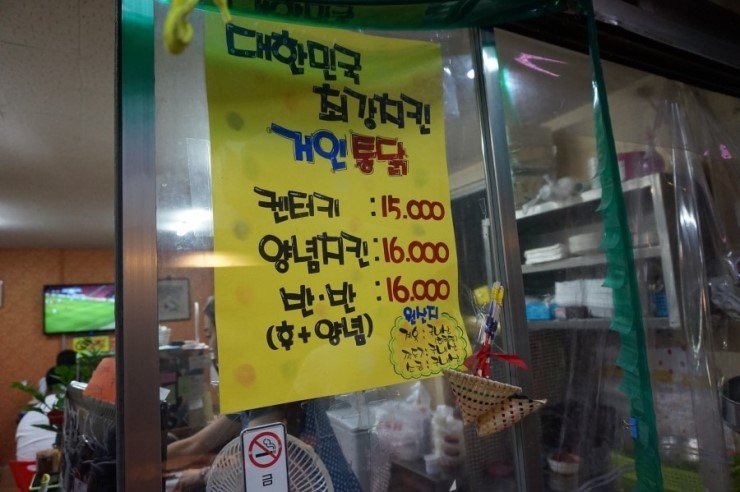 대한민국
최강치킨
거인통닭
켄터키 : 15.000
양념치킨 : 16.000
반·반 : 16.000
(후+양념)
원산지
금